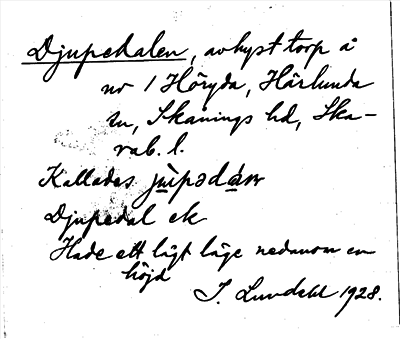 Djupedalen, avhyst torp å
nr 1 Höryda, Härlunda
sn, Skånings hd, Ska-
rab. l.
Kallades jùpədàn
Djupedal ek
Hade ett lågt läge nedanom en
höjd
I. Lundahl 1928.